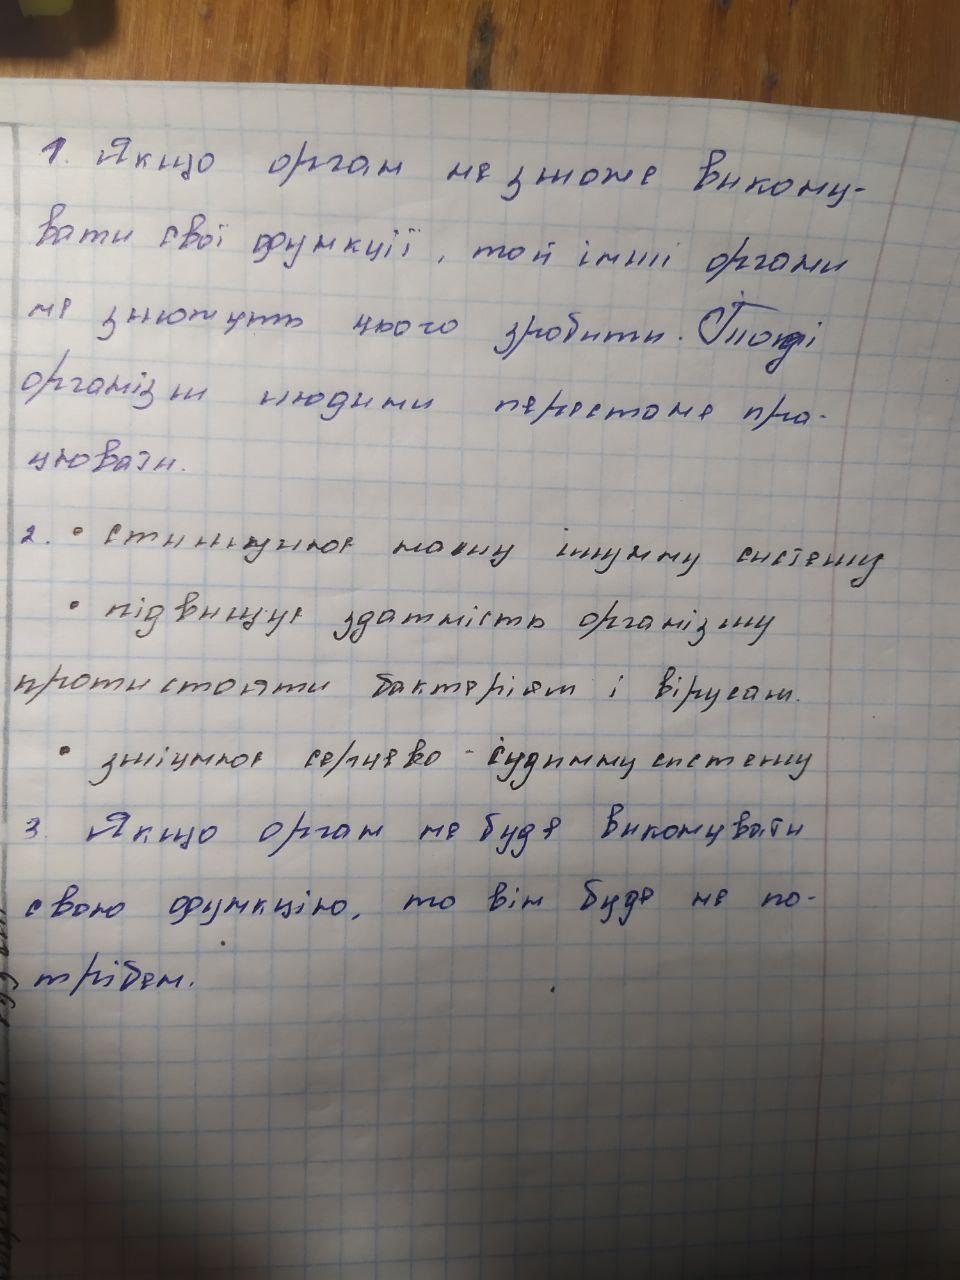 1. Якщо орган не зможе викону-
вати свої функції, той інші органи
не зможуть цього зробити. Тоді
організм людини перестане пра-
цювати.
2. • стимулює нашу імунну систему
• підвищує здатність організму
протистояти бактеріям і вірусам.
• зміцнює серцево-судинну систему
3. Якщо орган не буде виконувати
свою функцію, то він буде не по-
трібен.